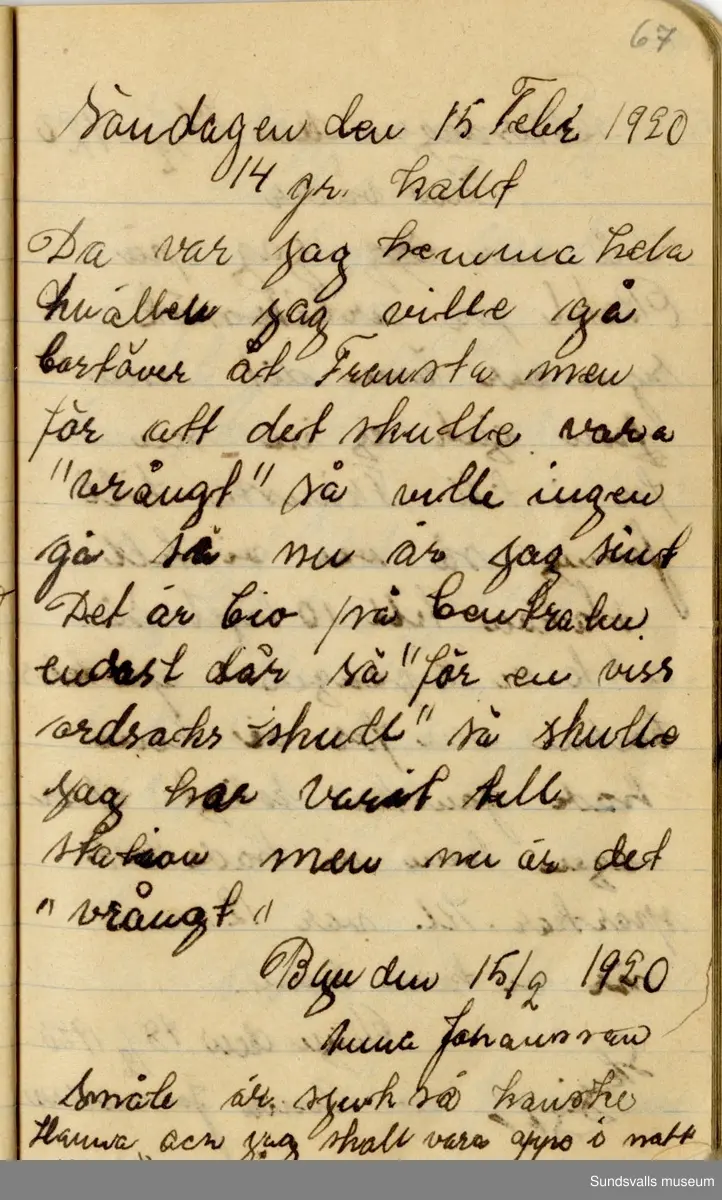 67
Söndagen den 15 Febr 1920
14 gr. kallt
Da var jag hemma hela
kvällen jag ville gå
bortöver åt Fransta men
för att det skulle vara
"vrångt" så ville ingen
gå så nu är jag sint
Det är bio på Centralen
endast där så "för en viss
ordsaks skull" så skulle
jag har varit till
station men nu är det
"vrångt"
Byn den 15/2 1920
Anna Johansson
Småle är sjuk så kanske
Hanna och jag skall vara oppe i natt
Sundsvalls museum